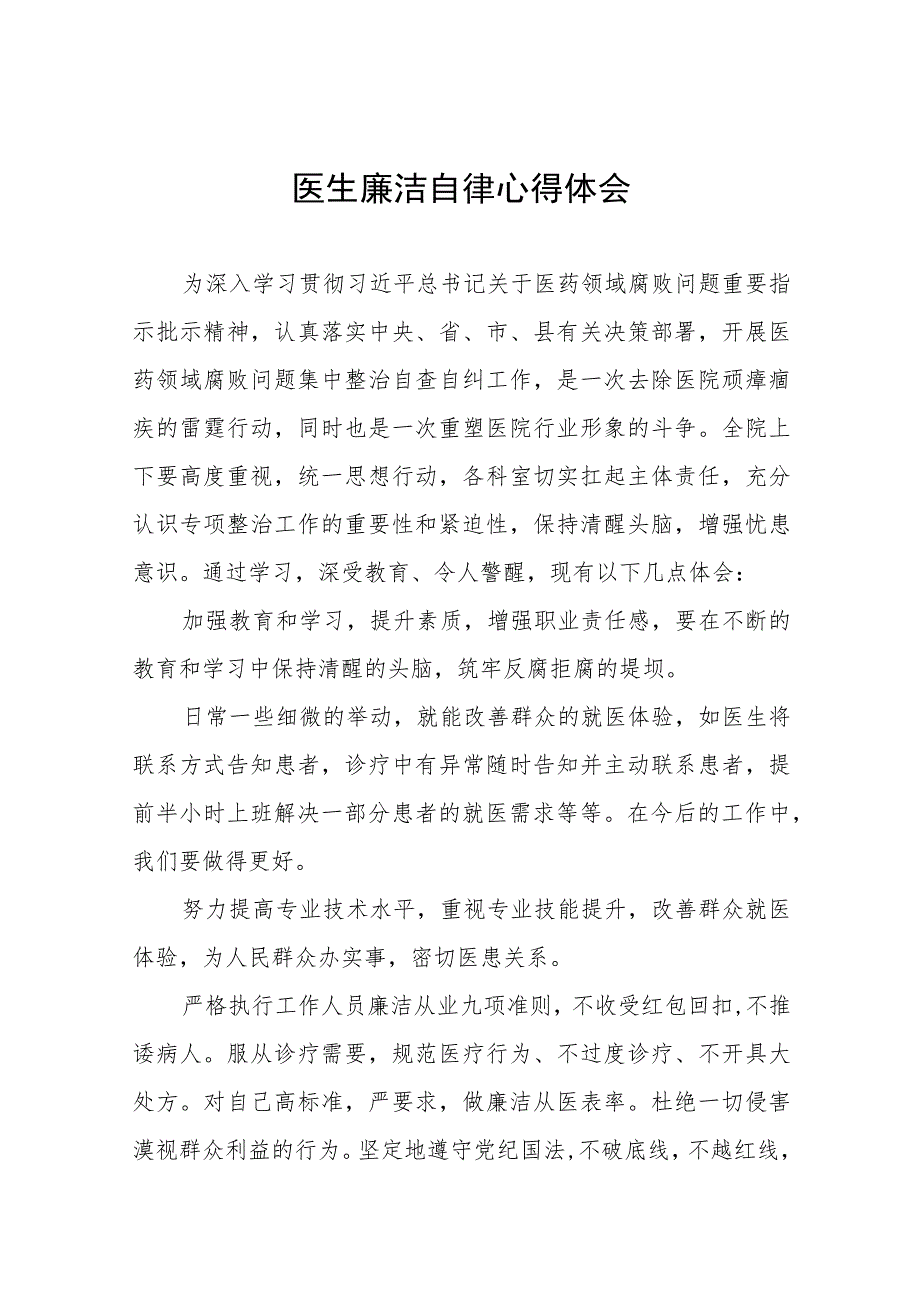 医生廉洁自律心得体会
为深入学习贯彻习近平总书记关于医药领域腐败问题重要指
示批示精神，认真落实中央、省、市、县有关决策部署，开展医
药领域腐败问题集中整治自查自纠工作，是一次去除医院顽瘴痼
疾的雷霆行动，同时也是一次重塑医院行业形象的斗争。全院上
下要高度重视，统一思想行动，各科室切实扛起主体责任，充分
认识专项整治工作的重要性和紧迫性，保持清醒头脑，增强忧患
意识。通过学习，深受教育、令人警醒，现有以下几点体会：
加强教育和学习，提升素质，增强职业责任感，要在不断的
教育和学习中保持清醒的头脑，筑牢反腐拒腐的堤坝。
日常一些细微的举动，就能改善群众的就医体验，如医生将
联系方式告知患者，诊疗中有异常随时告知并主动联系患者，提
前半小时上班解决一部分患者的就医需求等等。在今后的工作中，
我们要做得更好。
努力提高专业技术水平，重视专业技能提升，改善群众就医
体验，为人民群众办实事，密切医患关系。
严格执行工作人员廉洁从业九项准则，不收受红包回扣,不推
诿病人。服从诊疗需要，规范医疗行为、不过度诊疗、不开具大
处方。对自己高标准，严要求，做廉洁从医表率。杜绝一切侵害
漠视群众利益的行为。坚定地遵守党纪国法,不破底线，不越红线，